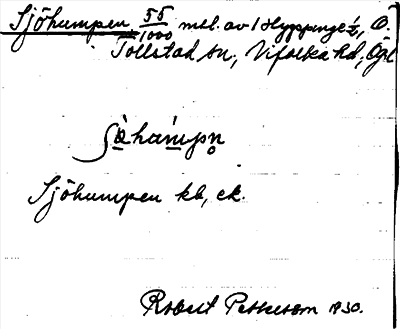 Sjöhumpen 55/1000 mtl. av 1 Hyppinge ½, O.
Tollstad sn., Vifolka hd, Ögl
Sjöhumpen kb, ek.
Robert Pettersson 1930.